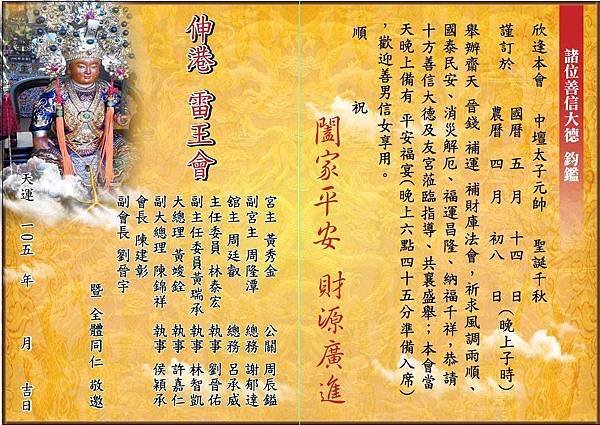 諸位善信大德 鈞鑑
欣逢本會、中壇太子元帥 聖誕千秋
謹訂於 國曆 五 月 十四 日
農曆 四 月 初八 日(晚上子時)
舉辦齋天 晉錢 補運 補財庫法會,祈求風調雨順、
國泰民安、消災解厄、福運昌隆、納福千祥,恭請
十方善信大德及友宮蒞臨指導、共襄盛舉;本會當
天晚上備有 平安福宴(晚上六點四十五分準備入席)
,歡迎善男信女享用。
順 祝
闔家平安 財源廣進
宮主 黃秀金 公關 周辰鎰
副宮主 周隆潭 總務 謝郁達
館主 周廷叡 總務 呂承威
主任委員 林泰宏 執事 劉晉佑
副主任委員 黃瑞承 執事 林智凱
大總理 黃竣銓 執事 許嘉仁
副大總理 陳錦祥 執事 侯穎承
會長 陳建彰
副會長 劉晉宇
暨 全體同仁 敬邀
伸港 雷王會
天運 一〇五 年 月 吉日